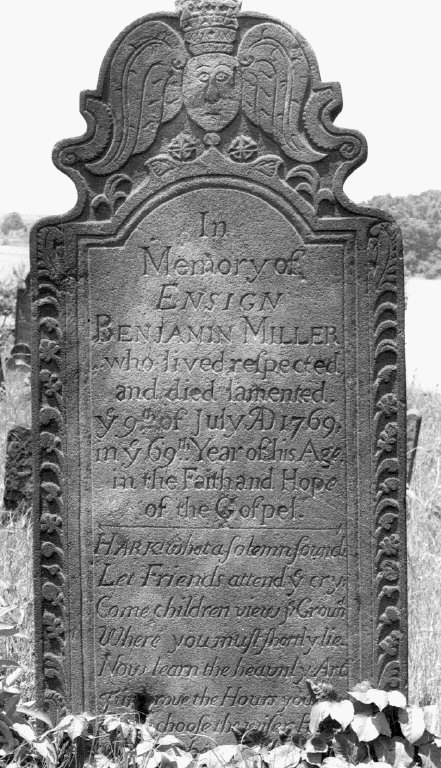 In
Memory of
ENSIGN
BENJAMIN MILLER
who lived reſpected
and died lamented
yͤ 9th of July AD 1769,
in yͤ 69th Year of his Age
in the Faith and Hope
of the Goſpel.
HARK! what a ſolemn ſound
Let Friends attend yͤ cry,
Come children view yͤ Groun
Where you muſt ſhortly lie
Now learn the heavnly Art
T' improve the Hours you
chooſe the wiſer